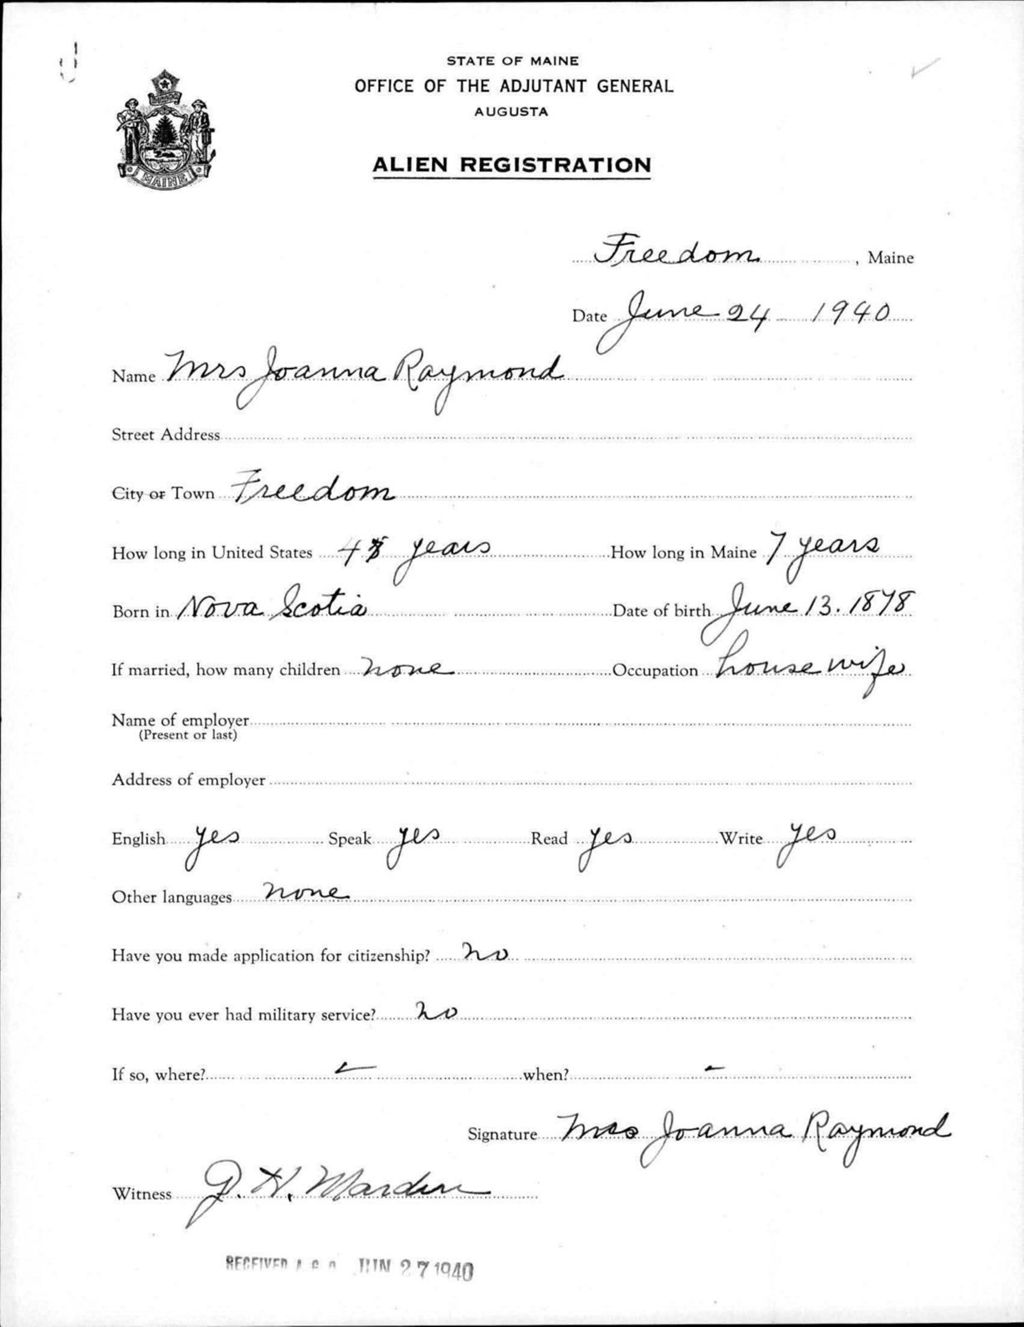 STATE OF MAINE
OFFICE OF THE ADJUTANT GENERAL
AUGUSTA
ALIEN REGISTRATION
MAINE
Freedom, Maine
Date June 24 1940
Name Mrs Joanna Raymond
Street Address
City or Town Freedom
How long in United States 4 years How long in Maine 7 years
Born in Nova Scotia Date of birth June 13. 1878
If married, how many children none Occupation housewife
Name of employer
(Present or last)
Address of employer
English yes Speak yes Read yes Write yes
Other languages none
Have you made application for citizenship? no
Have you ever had military service? no
If so, where? - when? -
Signature Mrs Joanna Raymond
Witness J. H. Marden
RECEIVED A.G.O. JUN 27 1940